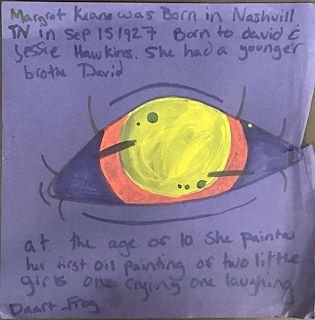 Margrot Keane was Born in Nashvill
TN in Sep 15 1927 Born to david &
Jessie Hawkins. She had a younger
brothe David
at the age of 10 She painte
her first oil painting of two little
girls one crying one laughing
Daart_frog